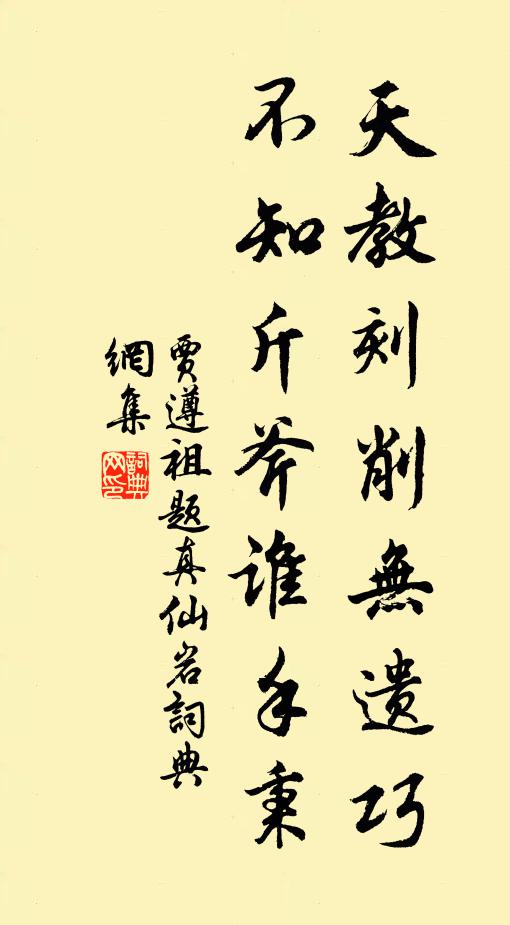 天教刻削無遺巧
不知斤斧谁手秉
賈遵祖題真仙岩詞典
網集
詞典網印